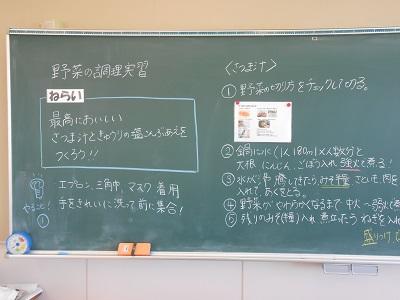 野菜の調理実習
ねらい
最高においしい
さつま汁ときゅうりの塩こんぶあえを
つくろう!!
エプロン、三角巾、マスク着用
手をきれいに洗って前に集合!
①
〈さつま汁〉
①野菜の切り方をチェックしてめる。
②鍋に に(1人180ml×人数分)と
大根 にんじん、ごぼう入れ強火で煮る!
③水が沸騰してきたら、みそ半量 さつま、肉を
入れて、あくをとる。
④野菜がやわらかくなるまで中火〜弱火で煮
⑤残りのみそ(半量)入れ煮立ったらねぎを入れ
盛りつけ